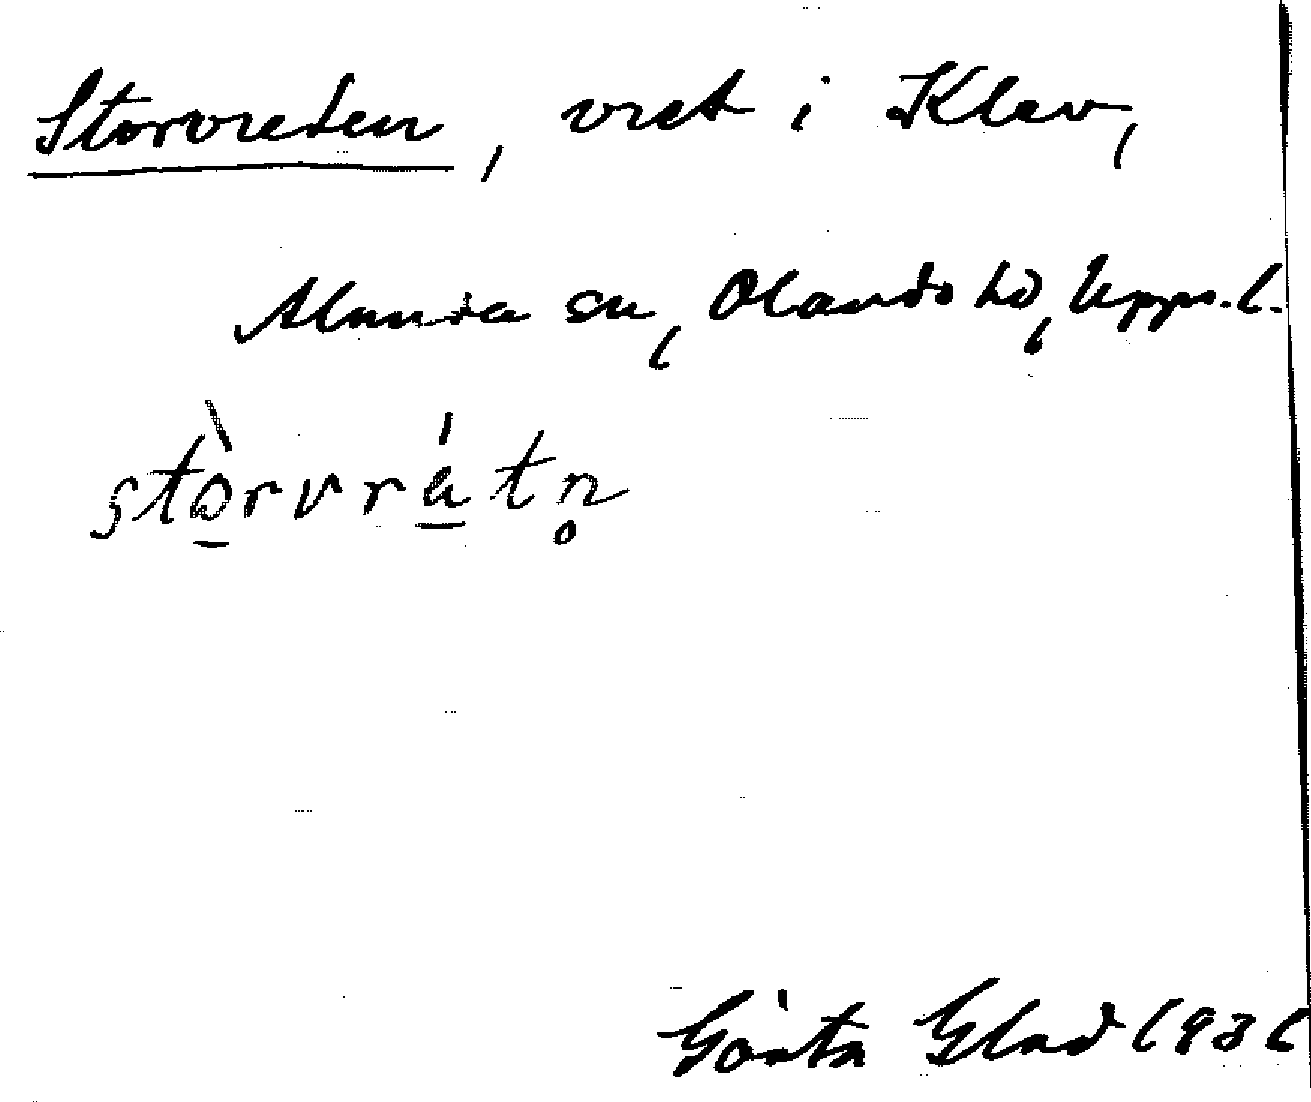 Storvreten, vret i Klev,
Alunda sn, Olands hd, Upps. l.
stòrvrátn̥
Gösta Glad 1931